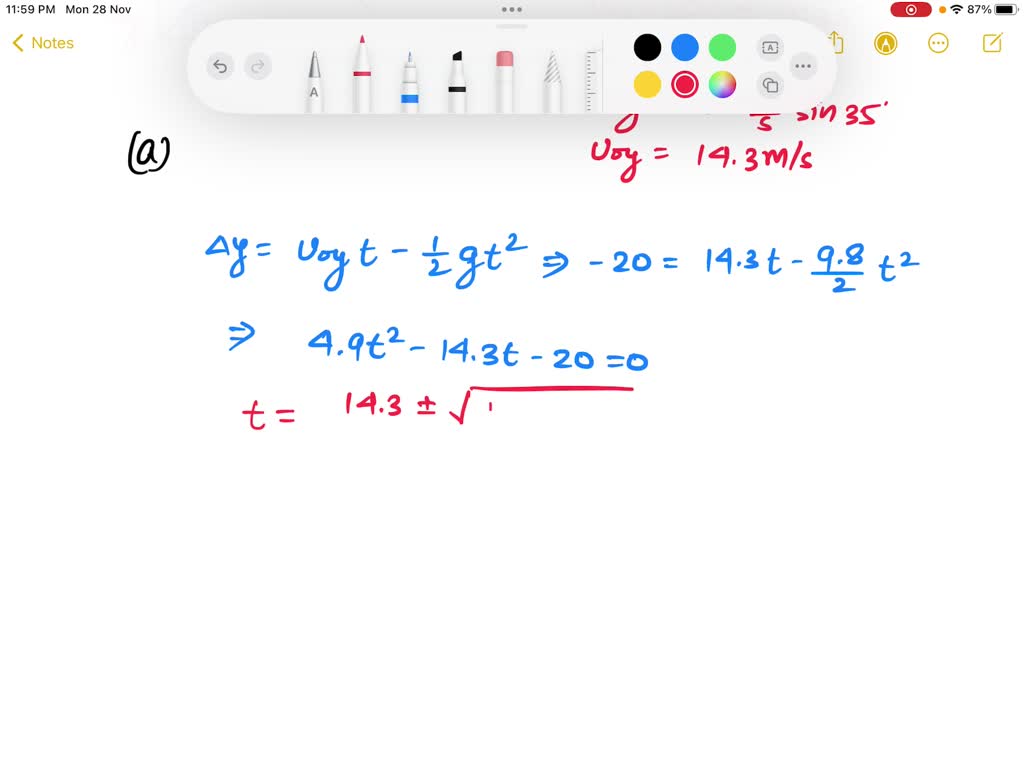 11:59 PM Mon 28 Nov
87%
Notes
A
A
s sin 35°
(a)
v0y = 14.3 m/s
Δy = v0y t - 1/2 gt² ⇒ -20 = 14.3t - 9.8/2 t²
⇒ 4.9t² - 14.3t - 20 = 0
t = 14.3 ± √